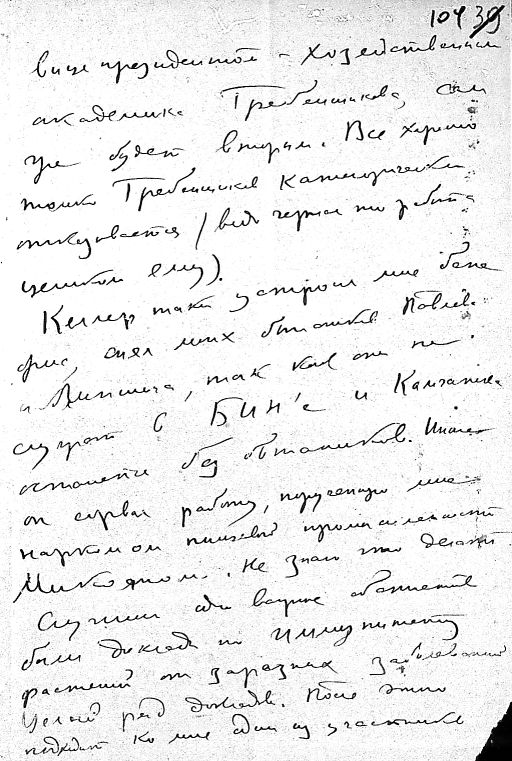 104
вице президентом - хозяйственным
академика Гребенщикова, он
уже будет вторым. Все хорошо
только Гребенщиков категорически
отказывается (ведь черная то работа
целиком ему).
Келлер таки устроил мне бене
фис, снял моих ботаников Павлова
и Липшица, так как они не
служат в БИН'е и Камчатка
останется без ботаников. Иначе
он сорвал работу, порученную мне
наркомом пищевой промышленности
Микояном. Не знаю что делать.
Случай один
были доклады по иммунитету
растений от заразных заболеваний
Целый ряд докладов. После этого
подходит ко мне один из участников